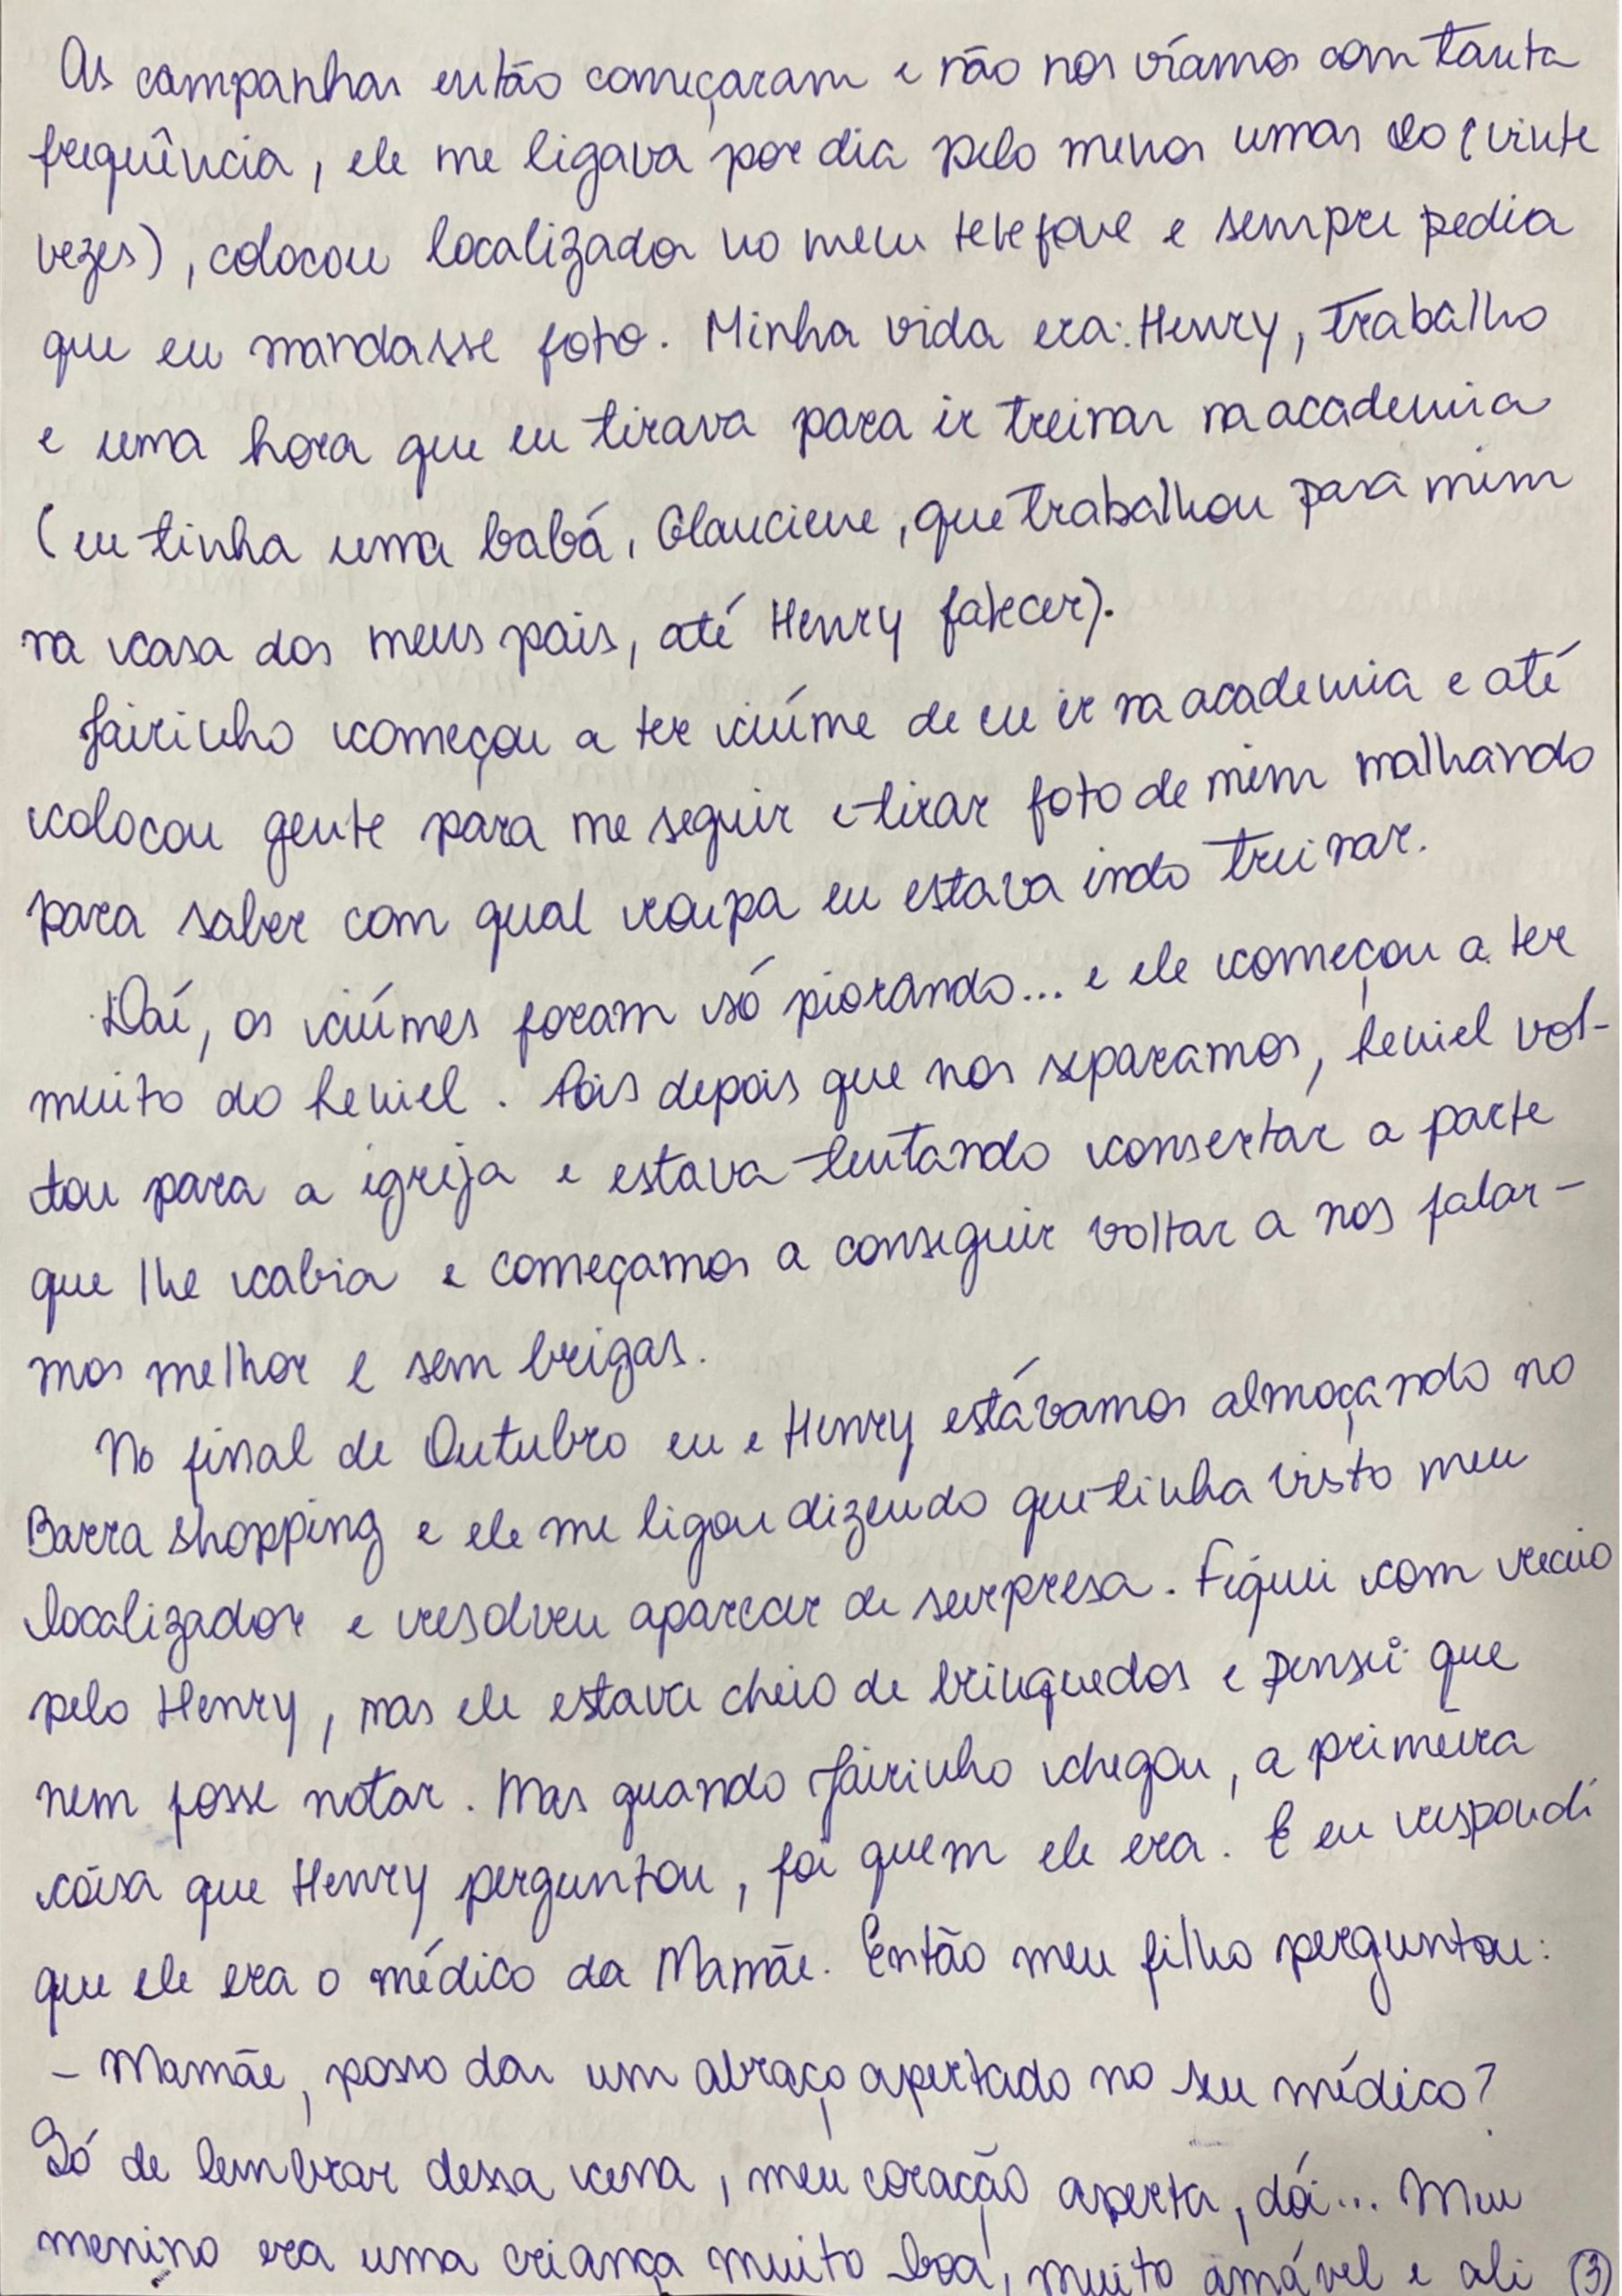 As campanhas então começaram e não nos víamos com tanta
frequência, ele me ligava por dia pelo menos umas 20 (vinte
vezes), colocou localizador no meu telefone e sempre pedia
que eu mandasse foto. Minha vida era: Henry, trabalho
e uma hora que eu tirava para ir treinar na academia
(eu tinha uma babá, Glauciene, que trabalhou para mim
na casa dos meus pais, até Henry falecer).
Jairinho começou a ter ciúme de eu ir na academia e até
colocou gente para me seguir e tirar foto de mim malhando
para saber com qual roupa eu estava indo treinar.
Daí, os ciúmes foram só piorando... e ele começou a ter
muito do Leniel. Pois depois que nos separamos, Leniel vol-
tou para a igreja e estava tentando consertar a parte
que lhe cabia e começamos a conseguir voltar a nos falar-
mos melhor e sem brigas.
No final de Outubro eu e Henry estávamos almoçando no
Barra shopping e ele me ligou dizendo que tinha visto meu
localizador e resolveu aparecer de surpresa. Fiquei com receio
pelo Henry, mas ele estava cheio de brinquedos e pensei que
nem fosse notar. Mas quando Jairinho chegou, a primeira
coisa que Henry perguntou, foi quem ele era. E eu respondi
que ele era o médico da Mamãe. Então meu filho perguntou:
- Mamãe, posso dar um abraço apertado no seu médico?
Só de lembrar dessa cena, meu coração aperta, dói... Meu
menino era uma criança muito boa, muito amável e ali (3)